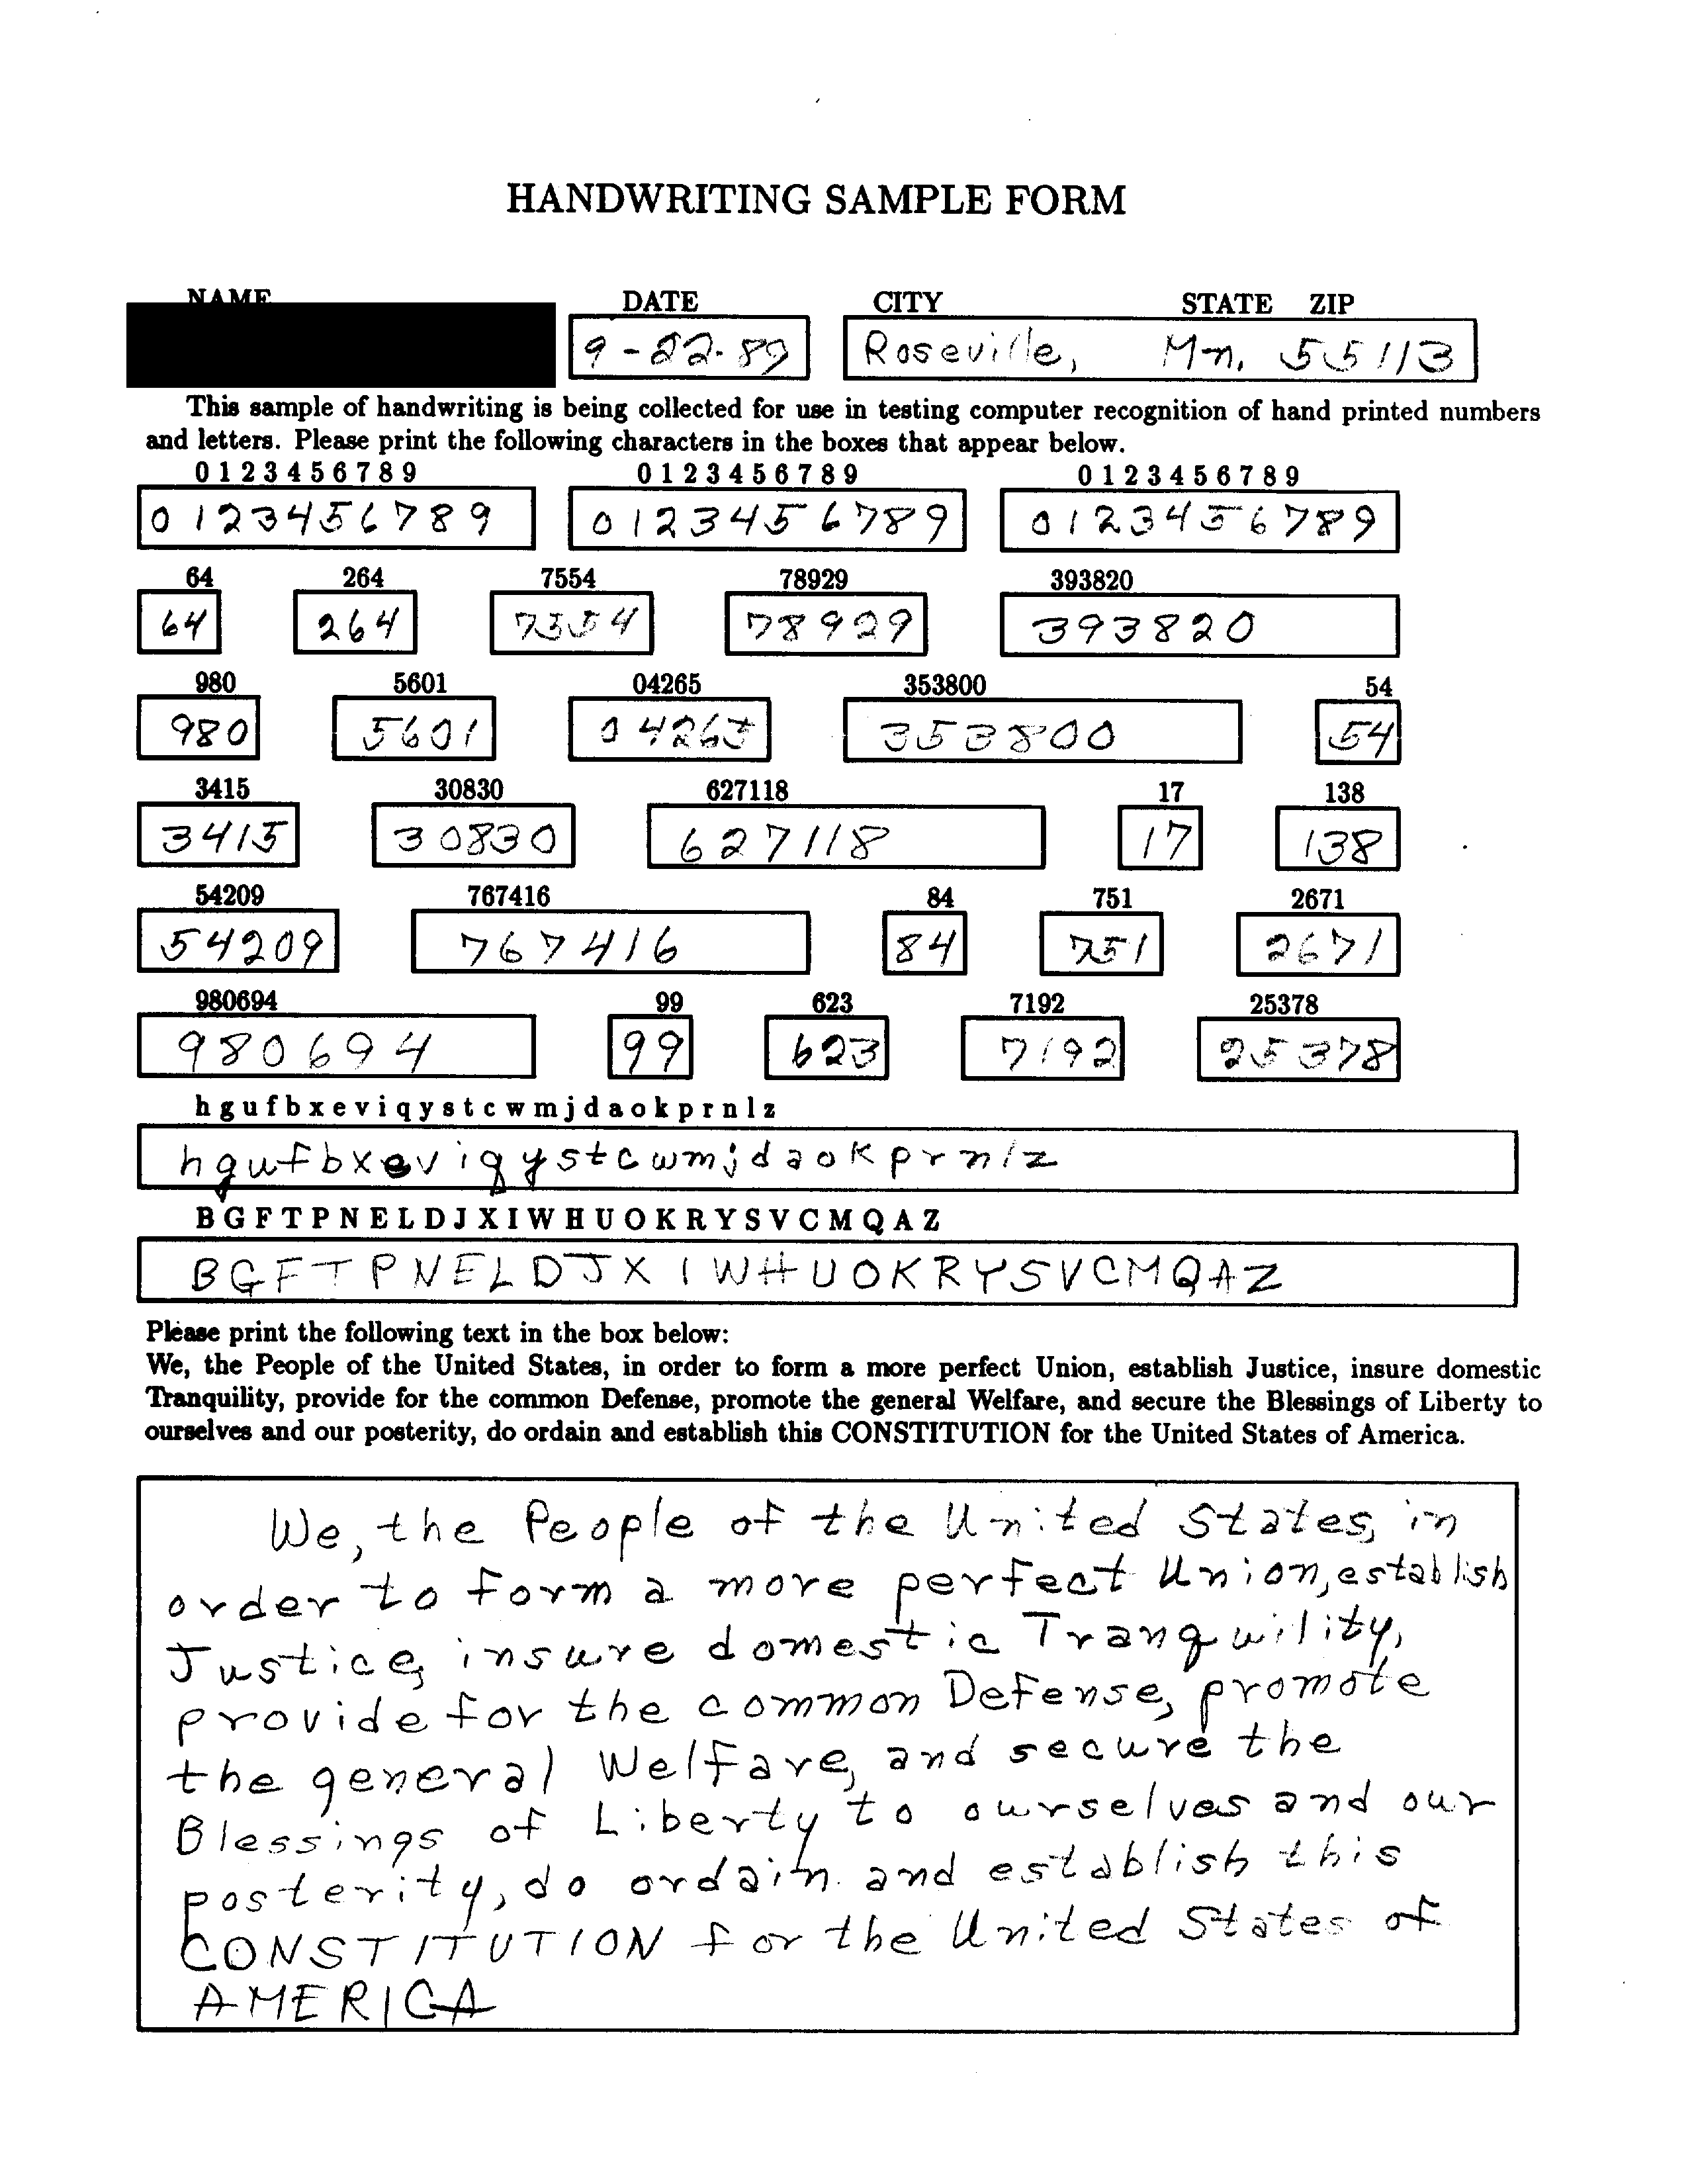 HANDWRITING SAMPLE FORM
NAME DATE CITY STATE ZIP
9-22-89 Roseville, Mn. 55113
This sample of handwriting is being collected for use in testing computer recognition of hand printed numbers
and letters. Please print the following characters in the boxes that appear below.
0 1 2 3 4 5 6 7 8 9 0 1 2 3 4 5 6 7 8 9 0 1 2 3 4 5 6 7 8 9
0123456789 0123456789 0123456789
64 264 7554 78929 393820
64 264 7554 78929 393820
980 5601 04265 353800 54
980 5601 04265 353800 54
3415 30830 627118 17 138
3415 30830 627118 17 138
54209 767416 84 751 2671
54209 767416 84 751 2671
980694 99 623 7192 25378
980694 99 623 7192 25378
h g u f b x e v i q y s t c w m j d a o k p r n l z
hgufbxeviqystcwmjdaokprnlz
B G F T P N E L D J X I W H U O K R Y S V C M Q A Z
BGFTPNELDJXIWHUOKRYSVCMQAZ
Please print the following text in the box below:
We, the People of the United States, in order to form a more perfect Union, establish Justice, insure domestic
Tranquility, provide for the common Defense, promote the general Welfare, and secure the Blessings of Liberty to
ourselves and our posterity, do ordain and establish this CONSTITUTION for the United States of America.
We, the People of the United States, in
order to form a more perfect Union, establish
Justice, insure domestic Tranquility,
provide for the common Defense, promote
the general Welfare, and secure the
Blessings of Liberty to ourselves and our
posterity, do ordain and establish this
CONSTITUTION for the United States of
AMERICA